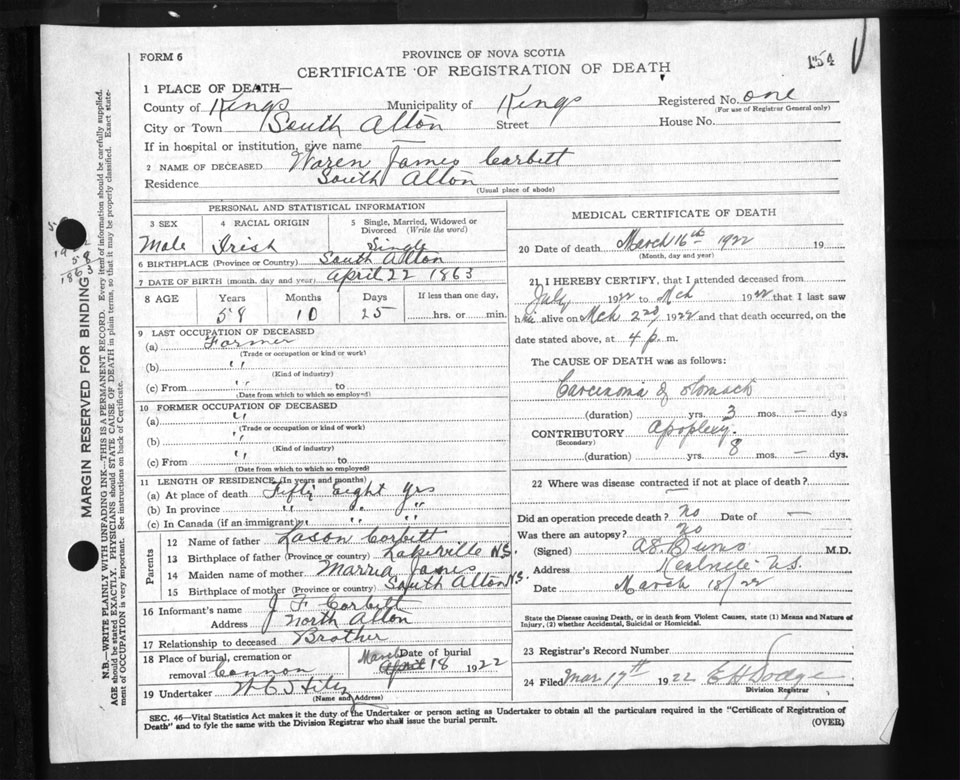 FORM 6
PROVINCE OF NOVA SCOTIA
CERTIFICATE OF REGISTRATION OF DEATH
154
1 PLACE OF DEATH—
County of Kings Municipality of Kings Registered No. one
(For use of Registrar General only)
City or Town South Alton Street House No.
If in hospital or institution, give name
2 NAME OF DECEASED Waren James Corbitt
Residence South Alton
(Usual place of abode)
MARGIN RESERVED FOR BINDING
N.B.—WRITE PLAINLY WITH UNFADING INK—THIS IS A PERMANENT RECORD. Every item of information should be carefully supplied.
AGE should be stated EXACTLY. PHYSICIANS should STATE CAUSE OF DEATH in plain terms, so that it may be properly classified. Exact state-
ment of OCCUPATION is very important. See instructions on back of Certificate.
PERSONAL AND STATISTICAL INFORMATION
3 SEX 4 RACIAL ORIGIN 5 Single, Married, Widowed or
Divorced (Write the word)
Male Irish Single
6 BIRTHPLACE (Province or Country) South Alton
7 DATE OF BIRTH (month, day and year) April 22 1863
8 AGE Years Months Days If less than one day,
58 10 25 hrs. or min.
9 LAST OCCUPATION OF DECEASED
(a) Farmer
(Trade or occupation or kind or work)
(b) "
(Kind of industry)
(c) From " to
(Date from which to which so employed)
10 FORMER OCCUPATION OF DECEASED
(a) "
(Trade or occupation or kind of work)
(b) "
(Kind of industry)
(c) From " to
(Date from which to which so employed)
11 LENGTH OF RESIDENCE (In years and months)
(a) At place of death Fifty Eight Yrs
(b) In province " " "
(c) In Canada (if an immigrant) " " "
Parents
12 Name of father Corbitt
13 Birthplace of father (Province or country) Lakeville N.S.
14 Maiden name of mother Marria James
15 Birthplace of mother (Province or country) South Alton N.S.
16 Informant's name J F Corbitt
Address North Alton
17 Relationship to deceased Brother
18 Place of burial, cremation or removal Cannon Date of burial March April 18 1922
19 Undertaker
(Name and Address)
MEDICAL CERTIFICATE OF DEATH
20 Date of death March 16th 1922 19
(Month, day and year)
21 I HEREBY CERTIFY, that I attended deceased from
July 1922 to Mch 1922 that I last saw
him alive on Mch 2nd, 1922 and that death occurred, on the
date stated above, at 4 p. m.
The CAUSE OF DEATH was as follows:
Carcinoma of stomach
(duration) yrs. 3 mos. — dys
CONTRIBUTORY Apoplexy.
(Secondary)
(duration) yrs. 8 mos. — dys.
22 Where was disease contracted if not at place of death?
Did an operation precede death? No Date of —
Was there an autopsy? No
(Signed) M.D.
Address Kentville N.S.
Date March 18/22
State the Disease causing Death, or in death from Violent Causes, state (1) Means and Nature of
Injury, (2) whether Accidental, Suicidal or Homicidal.
23 Registrar's Record Number
24 Filed Mar 17th 1922 E H Dodge
Division Registrar
SEC. 46—Vital Statistics Act makes it the duty of the Undertaker or person acting as Undertaker to obtain all the particulars required in the "Certificate of Registration of
Death" and to fyle the same with the Division Registrar who shall issue the burial permit.
(OVER)